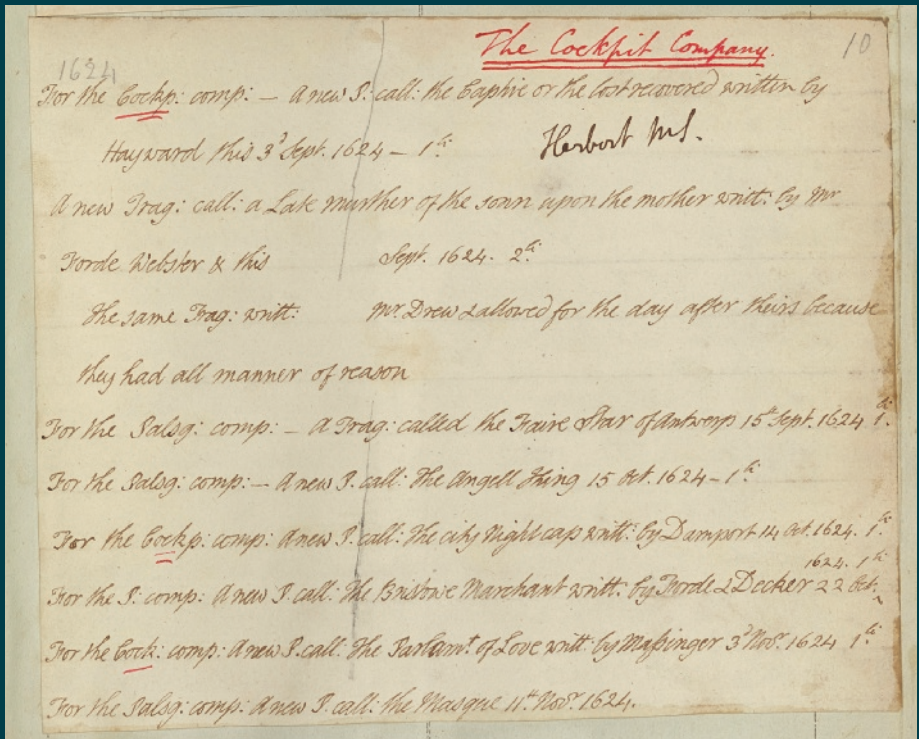 The Cockpit Company.
10
1624
For the Cockp: comp: – A new P. call: the Captive or the lost recovered written by
Hayward this 3d Sept. 1624 – 1li:
Herbert MS.
A new Trag: call: a Late murther of the sonn upon the mother writt: by Mr
Forde Webster & this Sept. 1624. 2li:
The same Trag: writt: Mr. Drew & allowed for the day after theirs because
they had all manner of reason
For the Palsg: comp: – A Trag: called the Faire Star of Antwerp 15th Sept. 1624 1li:
For the Palsg: comp: – A new P. call: the Angell King 15 Oct. 1624 – 1li:
For the Cockp: comp: A new P. call: the city Night cap writt: by Damport 14 Oct. 1624. 1li:
For the P: comp: A new P. call: the Bristowe Marchant writt: by Forde & Decker 22 Oct. 1624. 1li
For the Cock: comp: A new P. call: The Parlamt of Love writt: by Massinger 3d Novr. 1624 1li:
For the Palsg: comp: A new P. call: the Masque 11th Novr. 1624.